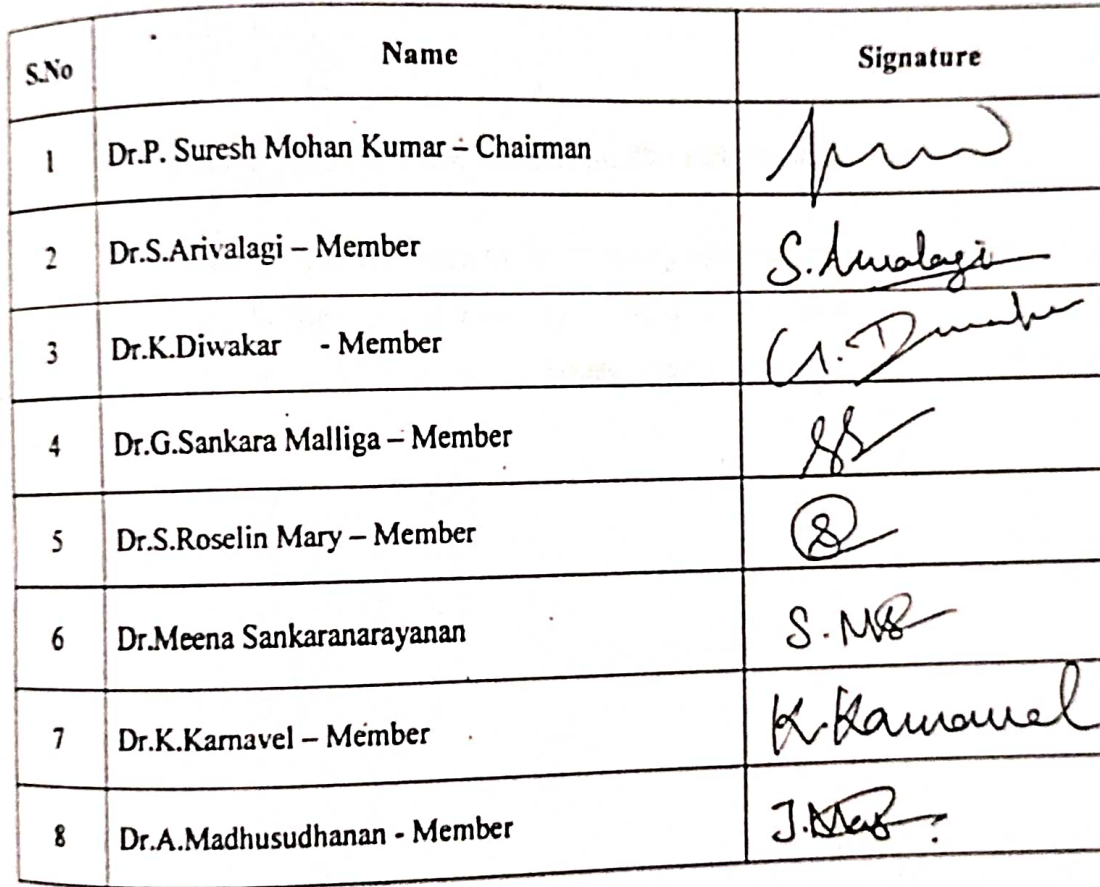 S.No Name Signature
1 Dr.P. Suresh Mohan Kumar – Chairman
2 Dr.S.Arivalagi – Member S.Arivalagi
3 Dr.K.Diwakar - Member
4 Dr.G.Sankara Malliga – Member
5 Dr.S.Roselin Mary – Member
6 Dr.Meena Sankaranarayanan
7 Dr.K.Karnavel – Member K.Karnavel
8 Dr.A.Madhusudhanan - Member